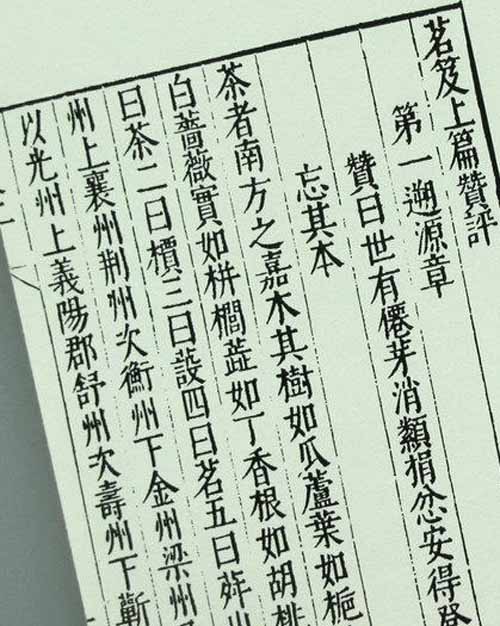 茗笈上篇贊評
第一遡源章
贊曰世有僊芽消纇捐忿安得登
忘其本
茶者南方之嘉木其樹如瓜蘆葉如梔
白薔薇實如栟櫚蕋如丁香根如胡桃
曰茶二曰檟三曰蔎四曰茗五曰荈山
州上襄州荆州次衡州下金州梁州
以光州上義陽郡舒州次壽州下蘄